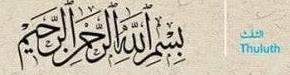 بسم الله الرحمن الرحيم
الثلث
Thuluth